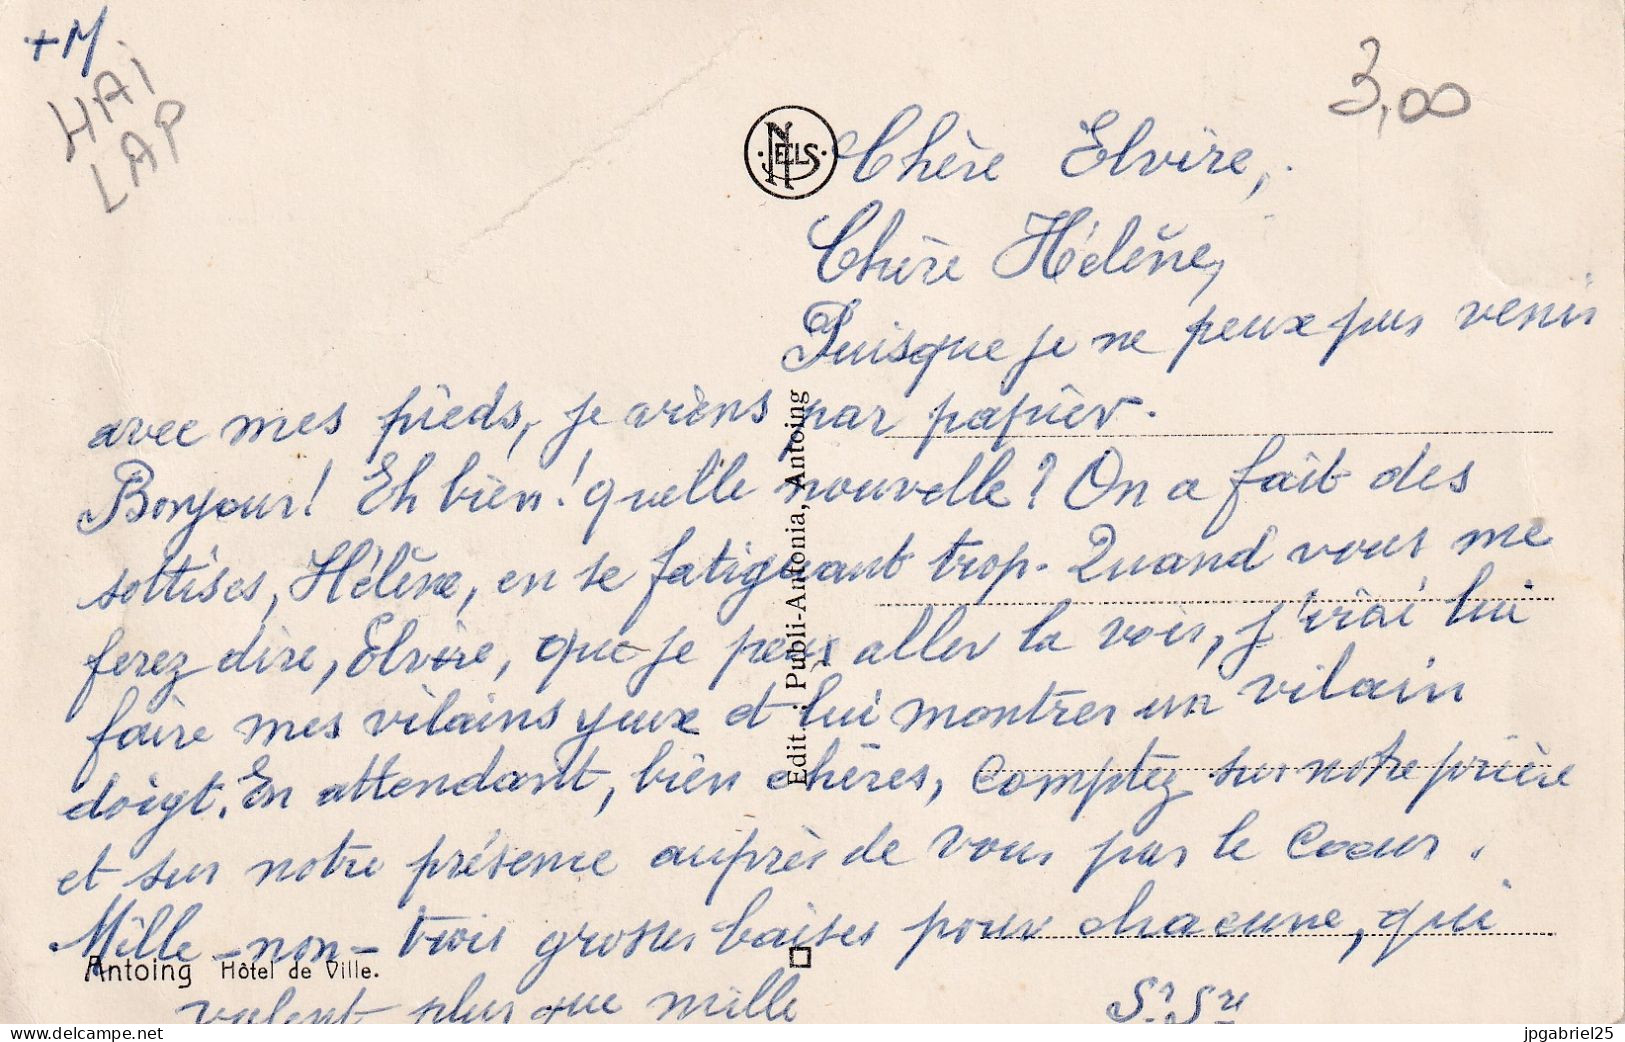 +M
HAI
LAP
3,00
NELS
Chère Elvire,
Chère Hélène,
Puisque je ne peux pas venir
avec mes pieds, je viens par papier.
Bonjour! Eh bien! quelle nouvelle? On a fait des
sottises, Hélène, en se fatiguant trop. Quand vous me
ferez dire, Elvire, que je peux aller la voir, j'irai lui
faire mes vilains yeux et lui montrer un vilain
doigt. En attendant, bien chères, comptez sur notre prière
et sur notre présence auprès de vous par le coeur.
Mille - non - trois grosses baises pour chacune, qui
valent plus que mille
Sr. Sre
Edit.: Publi-Antonia, Antoing
Antoing Hôtel de Ville.
delcampe.net
jpgabriel25